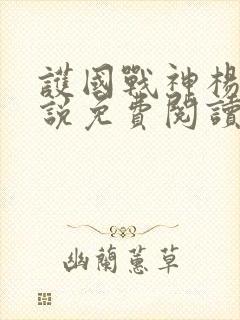 護國戰神楊
說免費閱讀
幽蘭蕙草